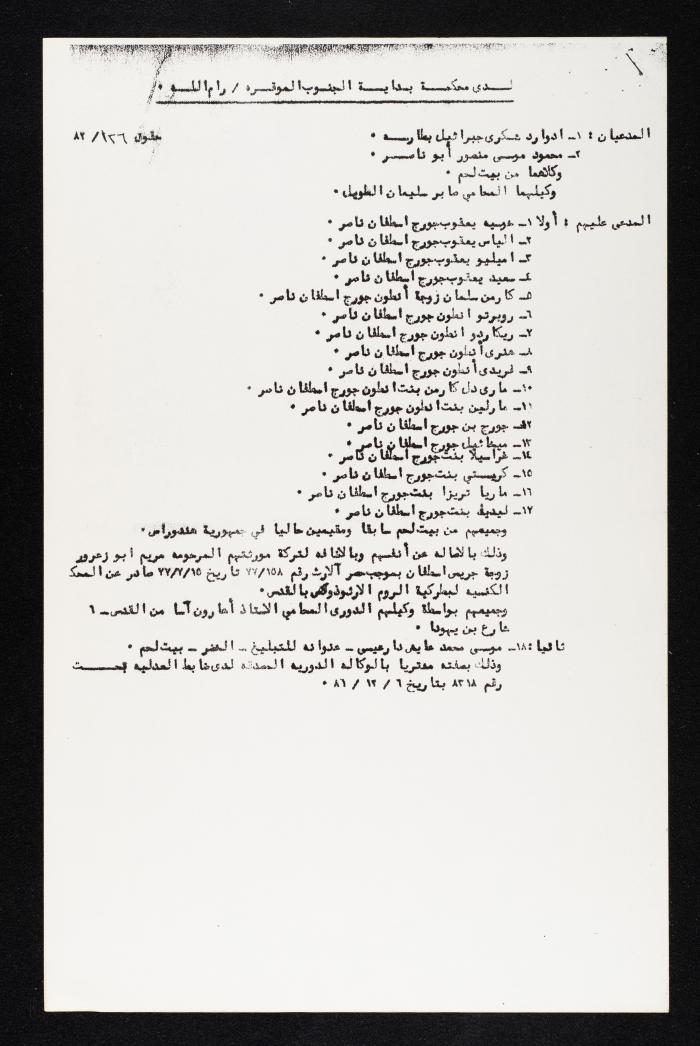 لـدى محكمـة بـدايـة الجنوب الموقـره / رام اللـه ٠
المدعيان : ١ـ ادوارد شكرى جبرائيل بطارسه ٠
حقوق ١٣٦/ ٨٢
٢ـ محمود موسى منصور أبو ناصـر ٠
وكلاهما من بيت لحم ٠
وكيلهما المحامي صابر سليمان الطويل ٠
المدعى عليهم : أولا ١ـ يعقوب جورج اسطفان ناصر ٠
٢ـ الياس يعقوب جورج اسطفان ناصر ٠
٣ـ اميليو يعقوب جورج اسطفان ناصر ٠
٤ـ سعيد يعقوب جورج اسطفان ناصر ٠
٥ـ كارمن سلمان زوجة أنطون جورج اسطفان ناصر ٠
٦ـ روبرتو انطون جورج اسطفان ناصر ٠
٧ـ ريكاردو انطون جورج اسطفان ناصر ٠
٨ـ هنرى أنطون جورج اسطفان ناصر ٠
٩ـ فريدى أنطون جورج اسطفان ناصر ٠
١٠ـ مارى دل كارمن بنت انطون جورج اسطفان ناصر ٠
١١ـ مارلين بنت انطون جورج اسطفان ناصر ٠
١٢ـ جورج بن جورج اسطفان ناصر ٠
١٣ـ ميخائيل جورج اسطفان ناصر ٠
١٤ـ غراسيلا بنت جورج اسطفان ناصر ٠
١٥ـ كريستي بنت جورج اسطفان ناصر ٠
١٦ـ ماريا تريزا بنت جورج اسطفان ناصر ٠
١٧ـ ليديا بنت جورج اسطفان ناصر ٠
وجميعهم من بيت لحم سابقا ومقيمين حاليا في جمهورية هندوراس ٠
وذلك بالاصاله عن أنفسهم وبالاضافه لتركة مورثتهم المرحومه مريم ابو زعرور
زوجة جريس اسطفان بموجب حصر الارث رقم ٧٧/١٥٨ تاريخ ٧٧/٧/١٥ صادر عن المحكـ
الكنسيه لبطركية الروم الارثوذوكس بالقدس ٠
وجميعهم بواسطة وكيلهم الدورى المحامي الاستاذ أهارون آسا من القدس ـ ٦
شارع بن يهودا ٠
ثانيا : ١٨ـ موسى محمد عايش دارعيسى ـ عنوانه للتبليغ ـ الخضر ـ بيت لحم ٠
وذلك بصفته مشتريا بالوكاله الدوريه المصدقه لدى ضابط العدليه تحـــت
رقم ٨٢١٨ بتاريخ ٦ / ١٢ / ٨٦ ٠